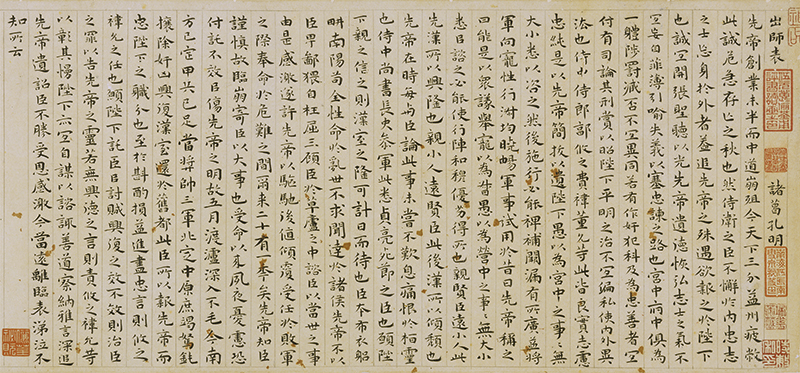 出師表 諸葛孔明
先帝創業未半而中道崩殂今天下三分益州疲敝
此誠危急存亡之秋也然侍衛之臣不懈於内忠志
之士忘身於外者蓋追先帝之殊遇欲報之於陛下
也誠宜開張聖聽以光先帝遺德恢弘志士之氣不
宜妄自菲薄引喻失義以塞忠諫之路也宮中府中俱為
一體陟罰臧否不宜異同若有作奸犯科及為忠善者宜
付有司論其刑賞以昭陛下平明之治不宜偏私使内外異
法也侍中侍郎郭攸之費禕董允等此皆良實志慮
忠純是以先帝簡拔以遺陛下愚以為宮中之事無
大小悉以咨之然後施行必能裨補闕漏有所廣益將
軍向寵性行淑均曉暢軍事試用於昔日先帝稱之
曰能是以衆議舉寵以為督愚以為營中之事事無大小
悉以諮之必能使行陣和穆優劣得所也親賢臣遠小人此
先漢所以興隆也親小人遠賢臣此後漢所以傾頹也
先帝在時每與臣論此事未嘗不歎息痛恨於桓靈
也侍中尚書長史參軍此悉貞亮死節之臣也願陛
下親之信之則漢室之隆可計日而待也臣本布衣躬
耕南陽苟全性命於亂世不求聞達於諸侯先帝不以
臣卑鄙猥自枉屈三顧臣於草廬之中諮臣以當世之事
由是感激遂許先帝以驅馳後值傾覆受任於敗軍
之際奉命於危難之間爾來二十有一年矣先帝知臣
謹慎故臨崩寄臣以大事也受命以來夙夜憂慮恐
付託不效以傷先帝之明故五月渡瀘深入不毛今南
方已定甲兵已足當獎帥三軍北定中原庶竭駑鈍
攘除奸凶興復漢室還於舊都此臣所以報先帝而
忠陛下之職分也至於斟酌損益進盡忠言則攸之
禕允之任也願陛下託臣以討賊興復之效不效則治臣
之罪以告先帝之靈若無興德之言則責攸之禕允等
以彰其慢陛下亦宜自謀以諮諏善道察納雅言深追
先帝遺詔臣不勝受恩感激今當遠離臨表涕泣不
知所云